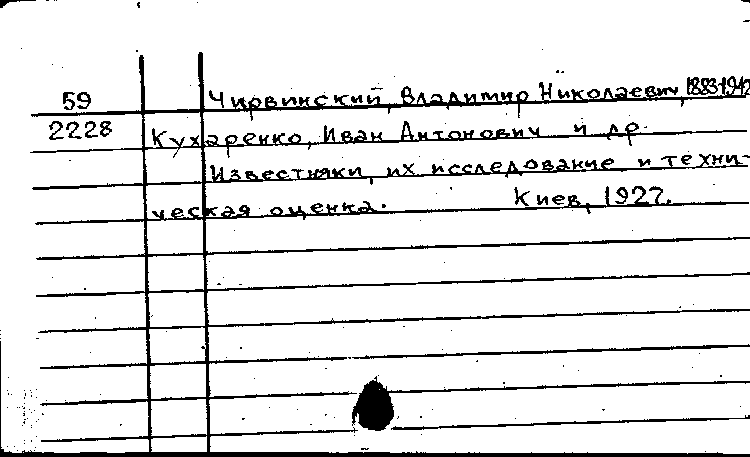 59 Чирвинский, Владимир Николаевич, 1883-1942
2228 Кухаренко, Иван Антонович и др.
Известняки, их исследование и техни-
ческая оценка. Киев, 1927.